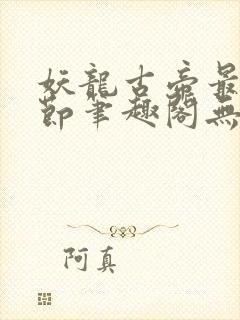 妖龍古帝最
節筆趣閣無
阿真